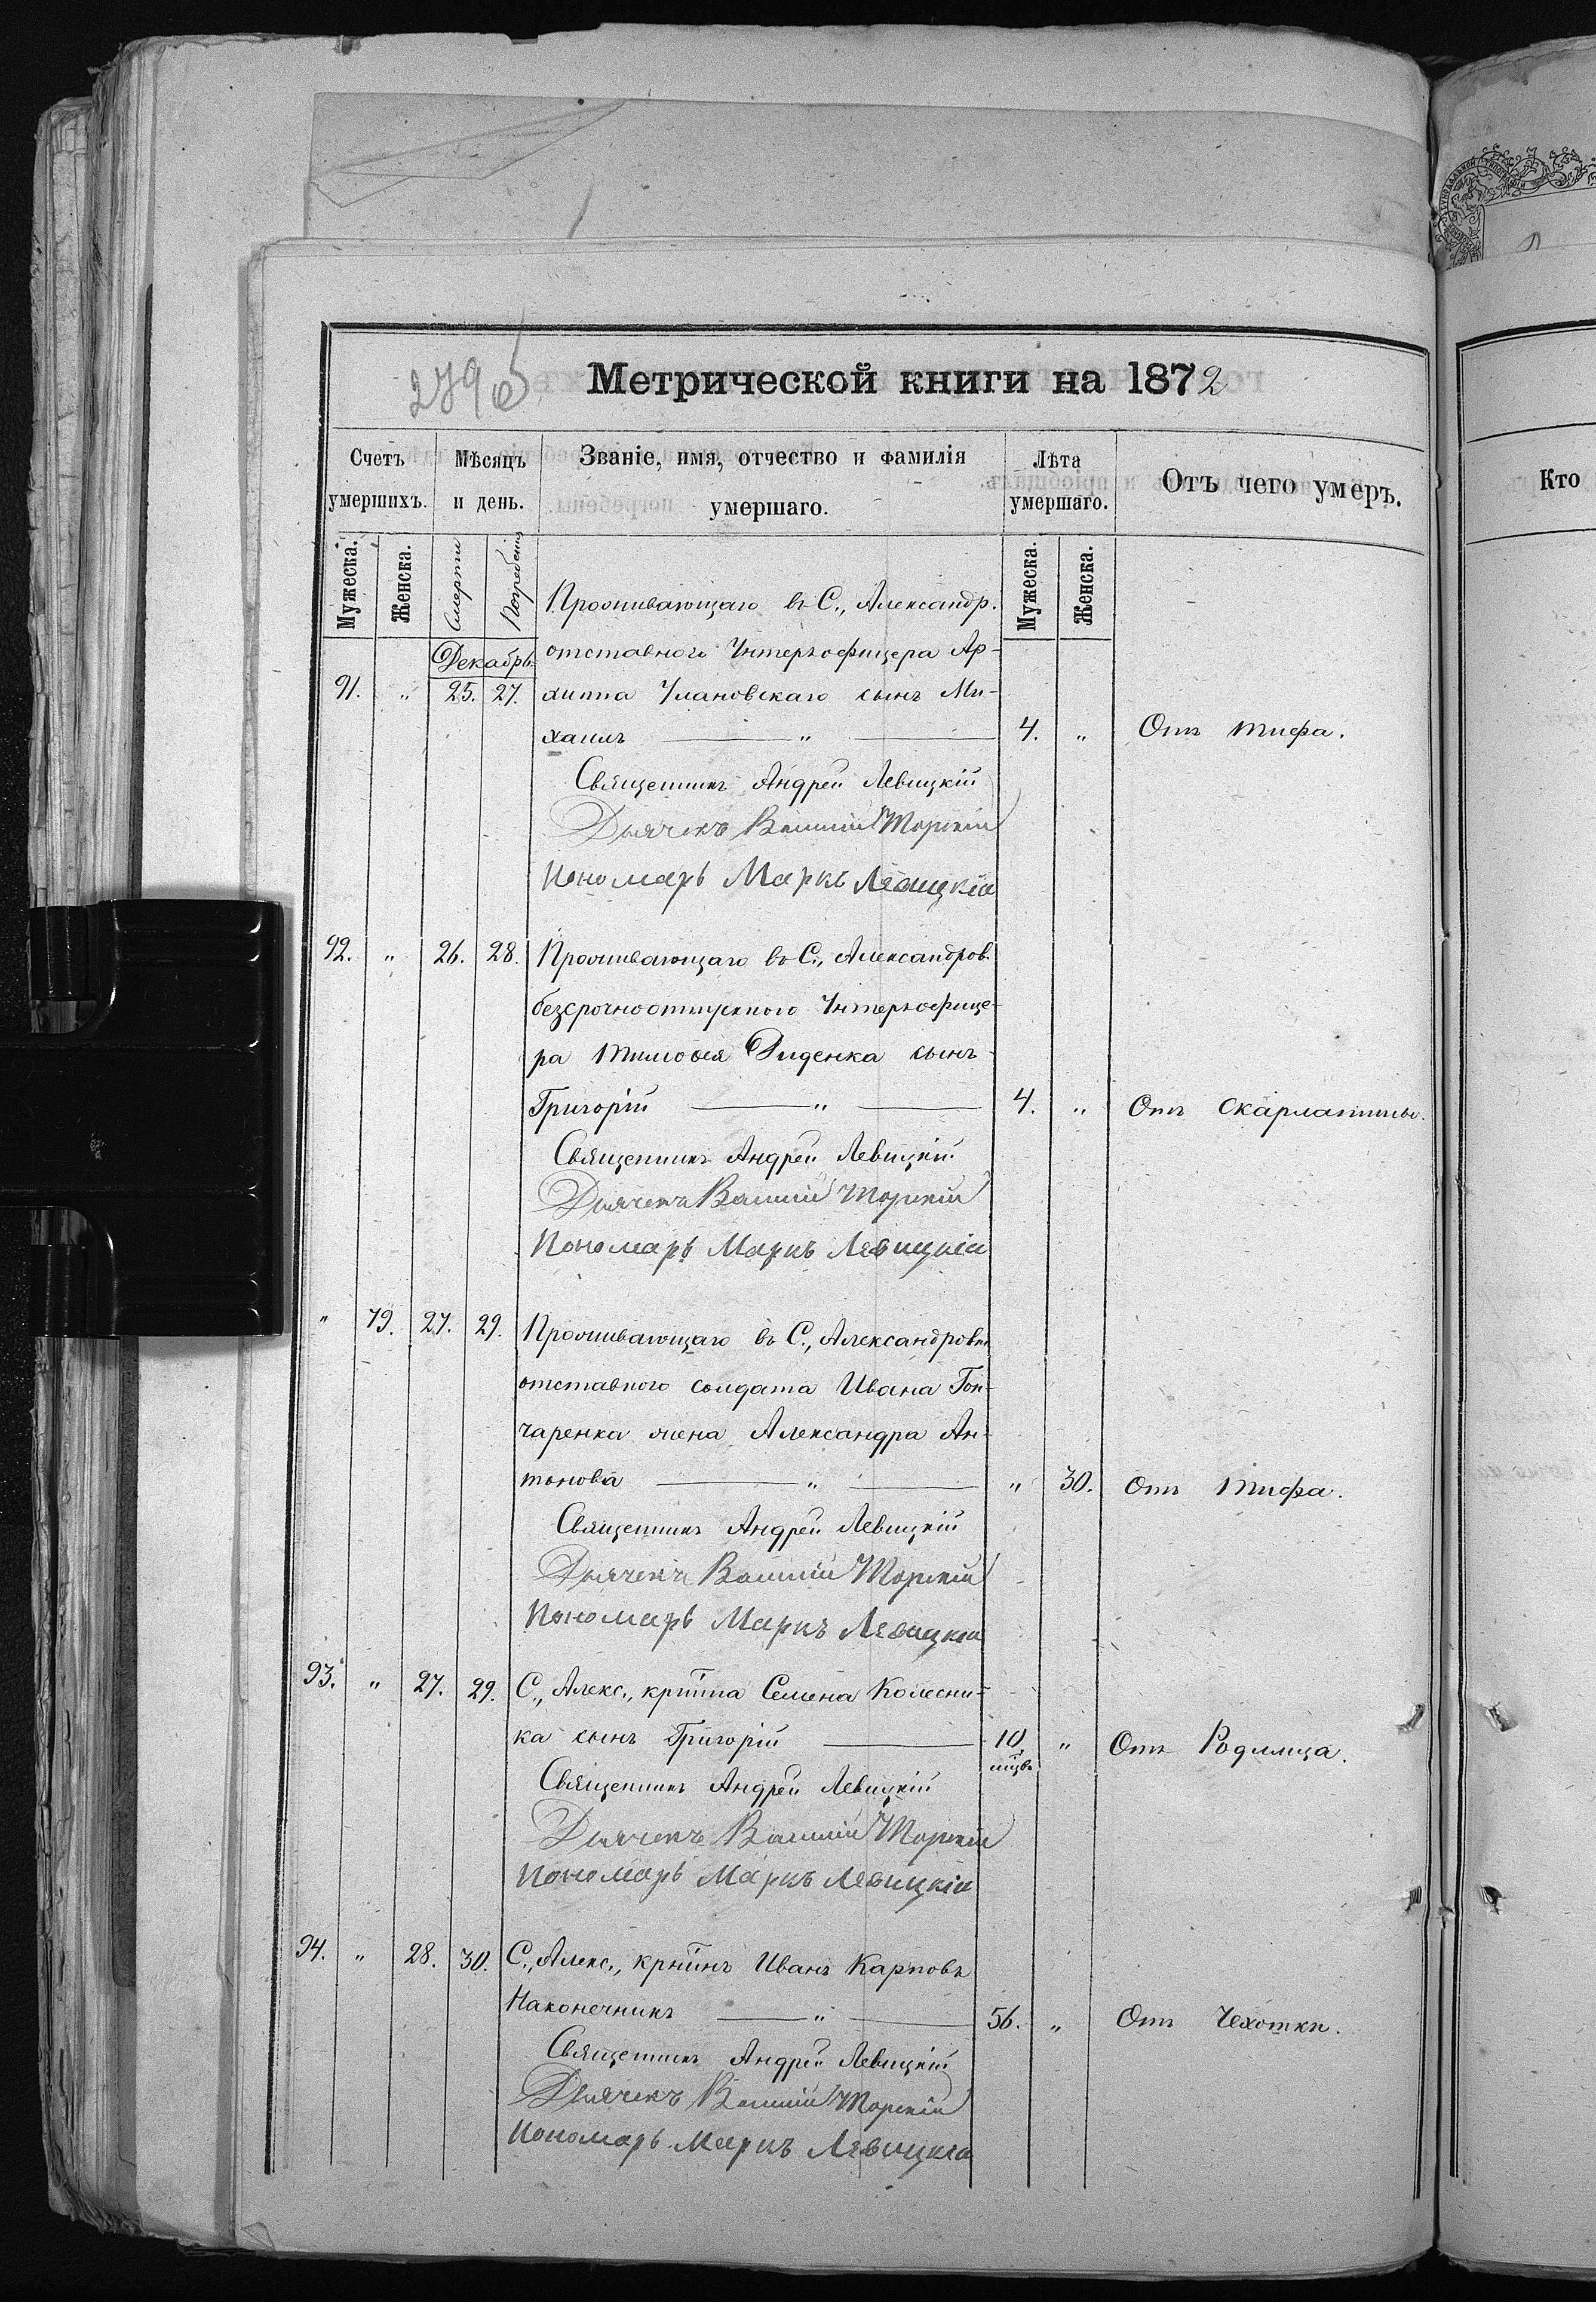 279об
Метрической книги на 1872
Счетъ умершихъ.
Мѣсяцъ и день.
Званіе, имя, отчество и фамилія умершаго.
Лѣта умершаго.
Отъ чего умеръ.
Кто
Мужеска.
Женска.
Смерти
Погребенія
Мужеска.
Женска.
Проживающаго въ С., Александр.
Декабрь
отставного Унтеръ офицера Ар-
91. " 25. 27. хиппа Улановскаго сынъ Ми-
хаилъ " 4. " Отъ тифа.
Священникъ Андрей Левицкій
Дьячекъ Василій Торскій
Пономарь Маркъ Левицкій
92. " 26. 28. Проживающаго въ С., Александров.
безсрочноотпускного Унтеръ офице-
ра Тимоѳея Диденка сынъ
Григорій " 4. " Отъ Скарлатины.
Священникъ Андрей Левицкій
Дьячекъ Василій Торскій
Пономарь Маркъ Левицкій
" 79. 27. 29. Проживающаго въ С., Александровкѣ
отставного солдата Ивана Гон-
чаренка жена Александра Ан-
тонова " " 30. Отъ тифа.
Священникъ Андрей Левицкій
Дьячекъ Василій Торскій
Пономарь Маркъ Левицкій
93. " 27. 29. С., Алекс., крнина Семена Колесни-
ка сынъ Григорій 10 " Отъ Родимца.
мцвъ
Священникъ Андрей Левицкій
Дьячекъ Василій Торскій
Пономарь Маркъ Левицкій
94. " 28. 30. С., Алекс., крнинъ Иванъ Карповъ
Наконечникъ " 56. " Отъ Чехотки.
Священникъ Андрей Левицкій
Дьячекъ Василій Торскій
Пономарь Маркъ Левицкій